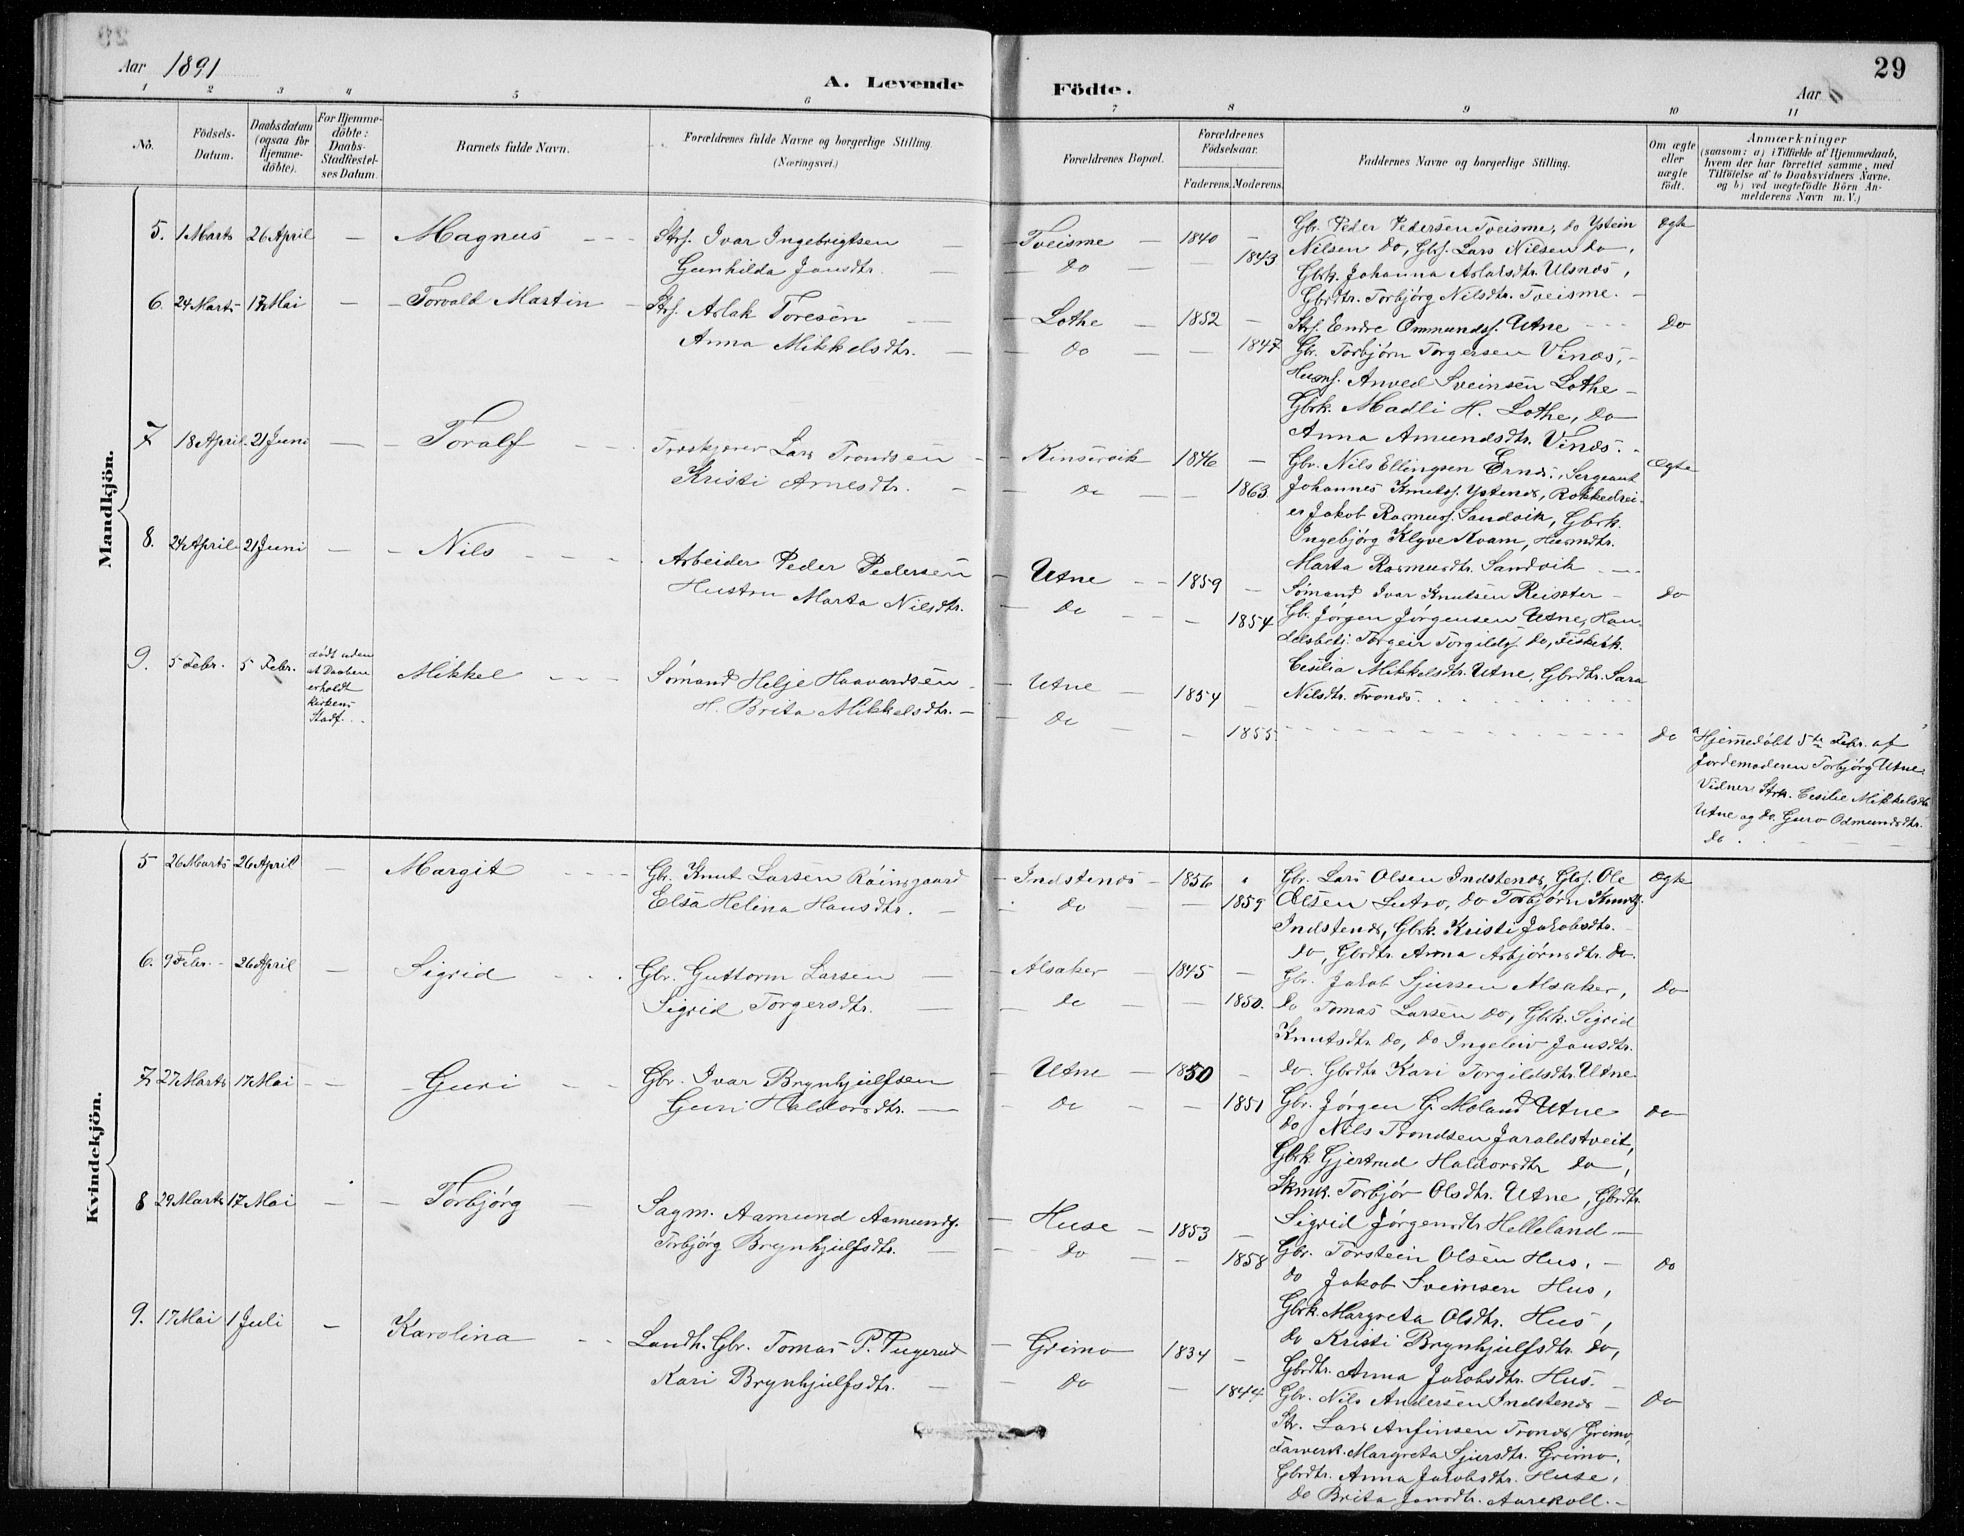 29
Aar 1891
A. Levende
Födte.
Aar
1 2 3 4 5 6 7 8 9 10 11
No.
Födsels-
Datum.
Daabsdatum
(ogsaa for
Hjemme-
döbte).
For Hjemme-
döbte:
Daabs-
Stadfæstel-
ses Datum.
Barnets fulde Navn.
Forældrenes fulde Navne og borgerlige Stilling.
(Næringsvei.)
Forældrenes Bopæl.
Forældrenes
Födselsaar.
Faderens. Moderens.
Faddernes Navne og borgerlige Stilling.
Om ægte
eller
uægte
födt.
Anmærkninger
(saasom: a) i Tilfælde af Hjemmedaab,
hvem der har forrettet samme, med
Tilföielse af to Daabsvidners Navne.
og b) ved uægtefödte Börn An-
melderens Navn m. V.)
Mandkjön.
5. 1 Marts 26 April – Magnus
Strf. Ivar Ingebrigtsen
Gunhilda Jansdtr.
Tveisme 1840
Do 1843
Gbr. Peder Pedersen Tveisme, do Ystein
Nilsen do, Gbrf. Lars Nilsen do,
Gbrk. Johanna Aslaksdtr. Ulsnæs,
Gbrdtr. Torbjörg Nilsdtr. Tveisme.
Ægte
6. 24 Marts 17 Mai – Torvald Martin
Strf. Aslak Toresen
Anna Mikkelsdtr.
Lothe 1852
Do 1847
Strf. Endre Ommundsf. Utne
Gbr. Torbjørn Torgersen Vinæs,
Husmf. Anved Sveinsen Lothe
Gbrk. Madli H. Lothe, do
Anna Amundsdtr. Vinæs.
Do
7 18 April 21 Juni – Toralf
Træskjærer Lars Trondsen
Kristi Arnesdtr.
Kinservik 1846
Do 1863
Gbr. Nils Ellingsen Ernæs, Sergeant
Johannes Knutsf. Ystenæs, Rokkedrei-
er Jakob Rasmusf. Sandvik, Gbrk.
Ingebjörg Klyve Kvam, Husmdtr.
Marta Rasmusdtr. Sandvik
Ægte
8. 24 April 21 Juni – Nils
Arbeider Peder Pedersen
Hustru Marta Nilsdtr.
Utne 1859
Do 1854
Sømand Ivar Knutsen Reisæter
Gb. Jörgen Jörgensen Utne, Han-
delsbetj. Torgeir Torgildsf. do, Fiskerk.
Cesilia Mikkelsdtr. Utne, Gbrdtr. Sara
Nilsdtr. Tronæs.
Do
9. 5 Febr. 5 Febr.
død uden
at Daaben
erholdt
Kirkens
Stadf.
Mikkel
Sømand Helje Haavardsen
H. Brita Mikkelsdtr.
Utne 1854
Do 1855
Do
a Hjemedøbt 5te Febr. af
Jordemoderen Torbjørg Utne.
Vidner Strk. Cesilie Mikkelsdtr.
Utne og do. Guro Odmundsdtr.
do
Kvindekjön.
5 26 Marts 26 April – Margit
Gbr. Knut Larsen Röinsgaard
Elsa Helina Hansdtr.
Indstenæs 1856
Do 1859
Gbr. Lars Olsen Indstenæs, Gbrf. Ole
Olsen Lutro, do Torbjørn Knutsf.
Indstenæs, Gbrk. Kristi Jakobsdtr.
do, Gbrdtr. Anna Asbjørnsdtr. do.
Ægte
6. 9 Febr. 26 April – Sigrid
Gbr. Guttorm Larsen
Sigrid Torgersdtr.
Alsaker 1845
do 1850.
Gbr. Jakob Sjursen Alsaker,
do Tomas Larsen do, Gbrk. Sigrid
Knutsdtr. do, do Ingeleiv Jansdtr.
do. Gbrdtr. Kari Torgildsdtr. Utne
Do
7. 27 Marts 17 Mai – Guri
Gbr. Ivar Brynhjulfsen
Guri Haldorsdtr.
Utne 1850
Do 1851
Gbr. Jörgen G. Moland Utne
do Nils Trondsen Jaraldstveit,
Gbrk. Gjertrud Haldorsdtr do,
Skmk. Torbjør Olsdtr. Utne, Gbrdtr.
Sigrid Jörgensdtr Helleland
Do
8 29 Marts 17 Mai – Torbjörg
Sagm. Aamund Aamundsf.
Torbjörg Brynhjulfsdtr.
Huse 1853
Do 1858
Gbr. Torstein Olsen Hus,
do Jakob Sveinsen Hus,
Gbrk. Margreta Olsdtr. Hus,
do Kristi Brynhjulfsdtr. do,
Gbrdtr. Anna Jakobsdtr. Hus.
Do
9. 17 Mai 1 Juli – Karolina
Landh. Gbr. Tomas P. Pugerud
Kari Brynhjulfsdtr.
Grimo 1834
Do 1844
Gbr. Nils Andersen Indstenæs
Str. Lars Anfinsen Tronæs, Grimo,
Farverk. Margreta Sjursdtr. Grimo,
Gbrdtr. Anna Jakobsdtr. Huse,
do Brita Jansdtr. Aarekoll.
Do